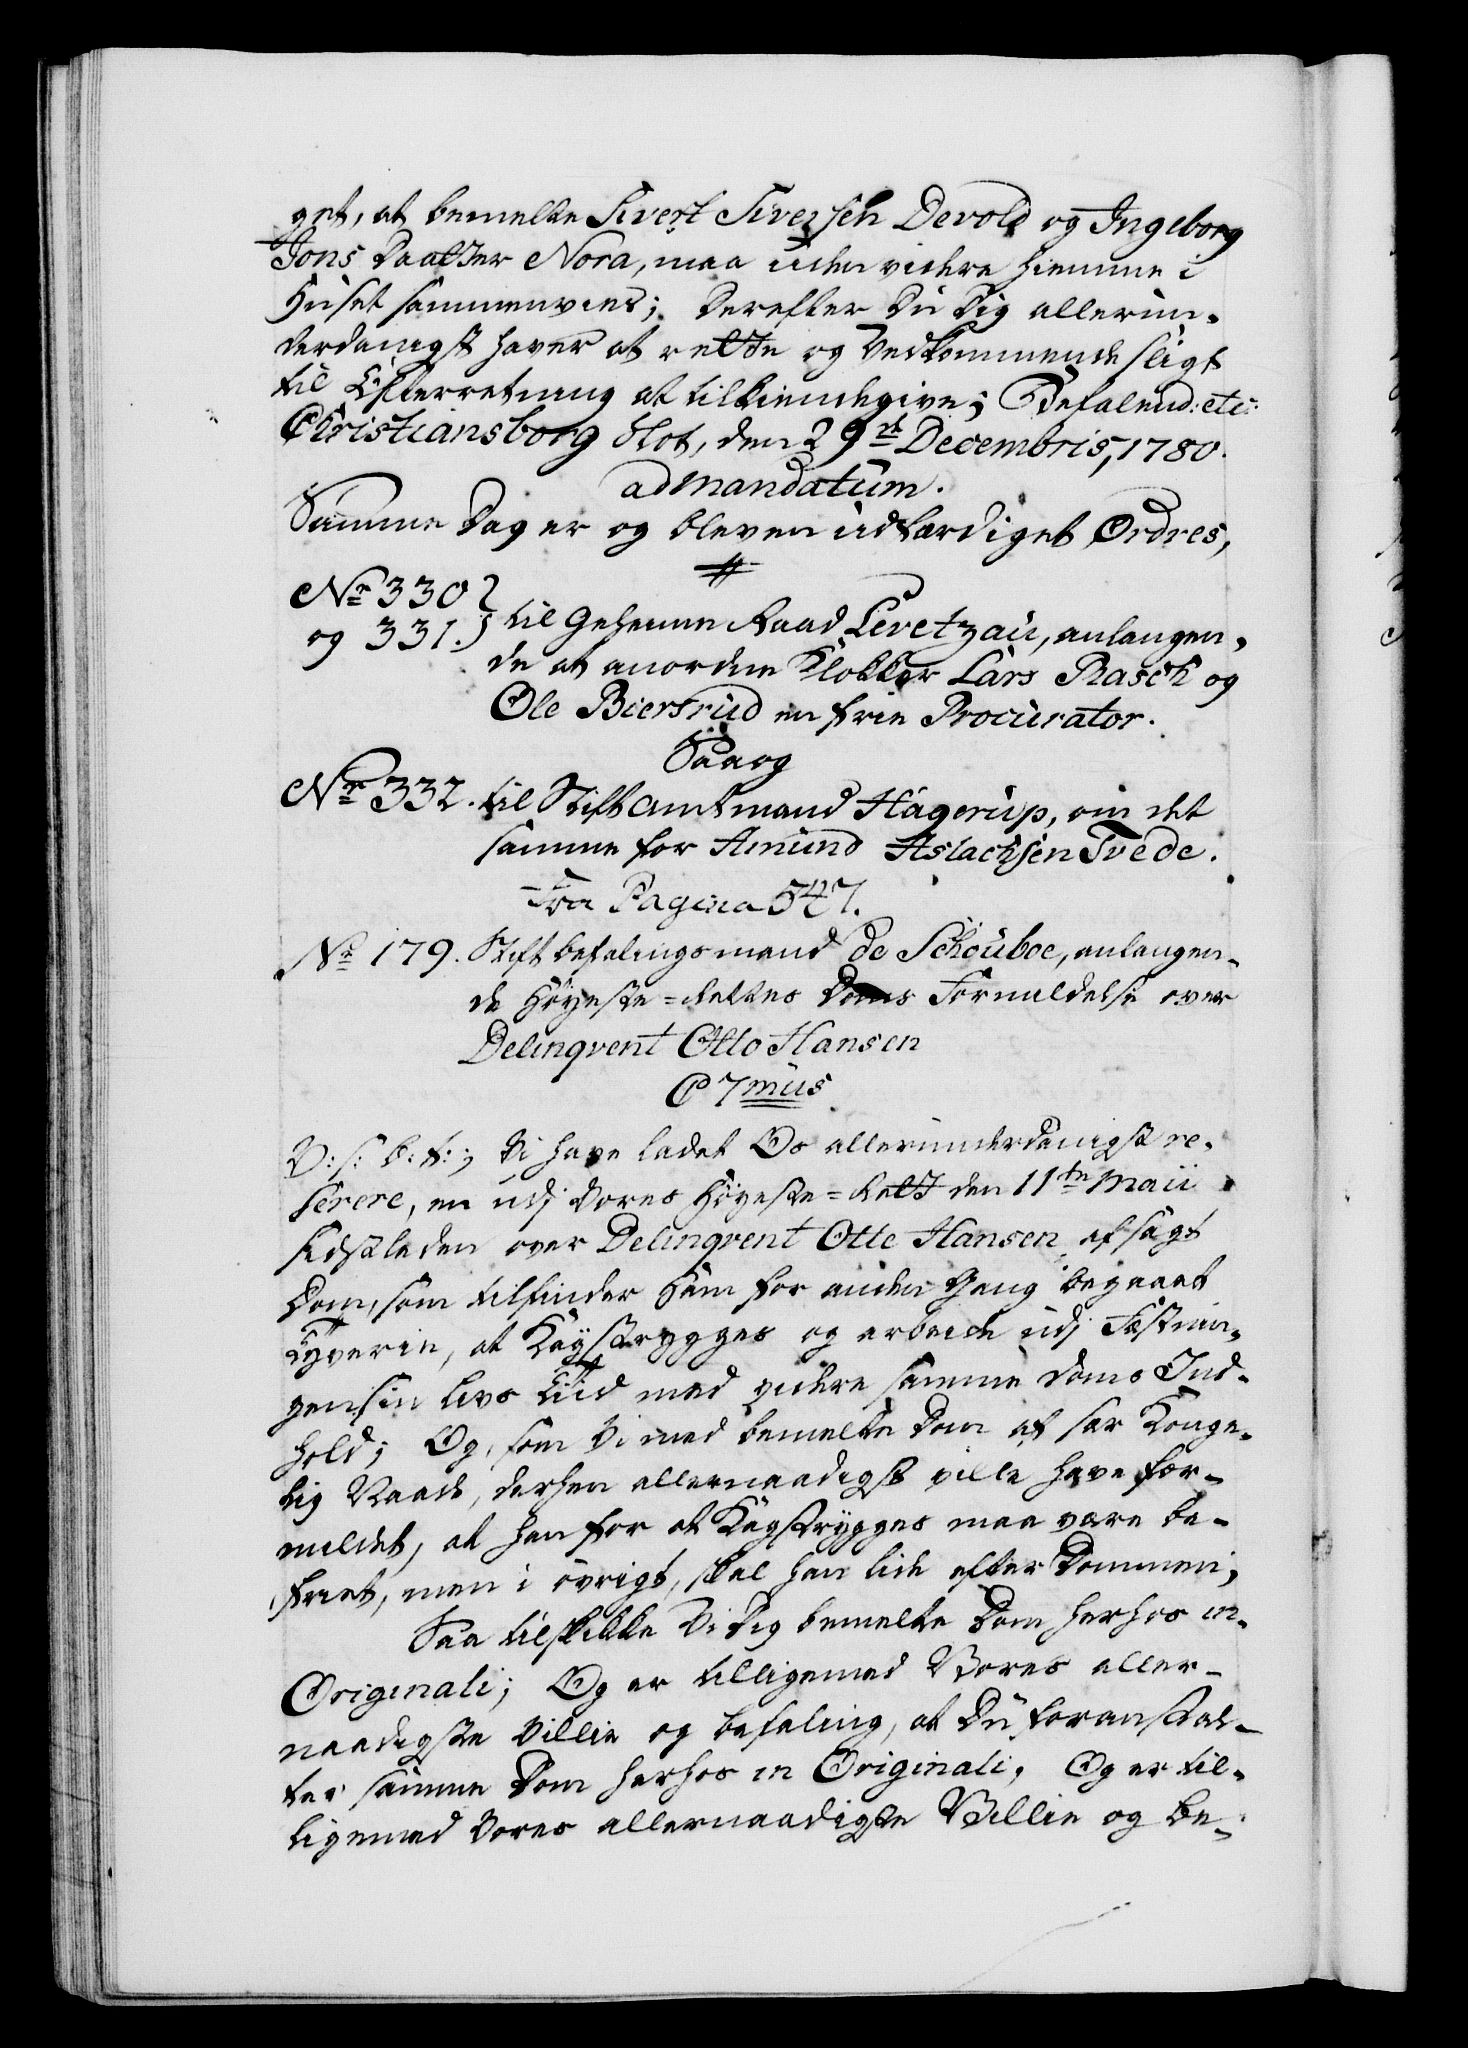 get, at bemelte Sivert Siversen Devold og Ingeborg
Jons Daatter Nora, maa uden videre hiemme i
Huset sammenvies; Derefter Du Dig allerun-
derdanigst haver at rette og Vedkommende sligt
til Efterretning at tilkiendegive; Befalend: etc:
Christiansborg Slot, den 29de Decembris, 1780.
ad mandatum.
Samme Dag er og bleven udfærdiget Ordres,
No 330
og 331. til Geheime Raad Levetzau, anlangen-
de at anordne Klokker Lars Rasch og
Ole Biersrud en frie Procurator.
Saa og
Nr 332. til Stiftamtmand Hagerup, om det
samme for Amund Aslachsen Tvede.
Fra Pagina 547.
No 179. Stiftbefalingsmand de Schouboe, anlangen-
de Höyeste-Rettes Doms Formildelse over
Delinqvent Otto Hansen
C7mus
V: s: b: t:; Vi have ladet Os allerunderdanigst re-
ferere, en udj Vores Höyeste-Rett den 11te Maii
sidstleden over Delinqvent Otte Hansen afsagt
Dom, som tilfinder Ham for anden Gang begaaet
Tyverie, at Kagstryges og arbeide udj Fæstnin-
gen sin Livs Tiid med videre samme Doms Ind-
hold; Og, som Vi med bemelte Dom af sær Konge-
lig Naade, derhen allernaadigst ville have for-
mildet, at han for at Kagstrygges maa være be-
friet, men i övrigt, skal han lide efter Dommen;
Saa tilskikke Vi Dig bemelte Dom herhos in
Originali; Og er tilligemed Vores aller-
naadigste Villie og befaling, at Du foranstal-
ter samme Dom herhos in Originali, Og er til-
ligemed Vores allernaadigste Villie og be-